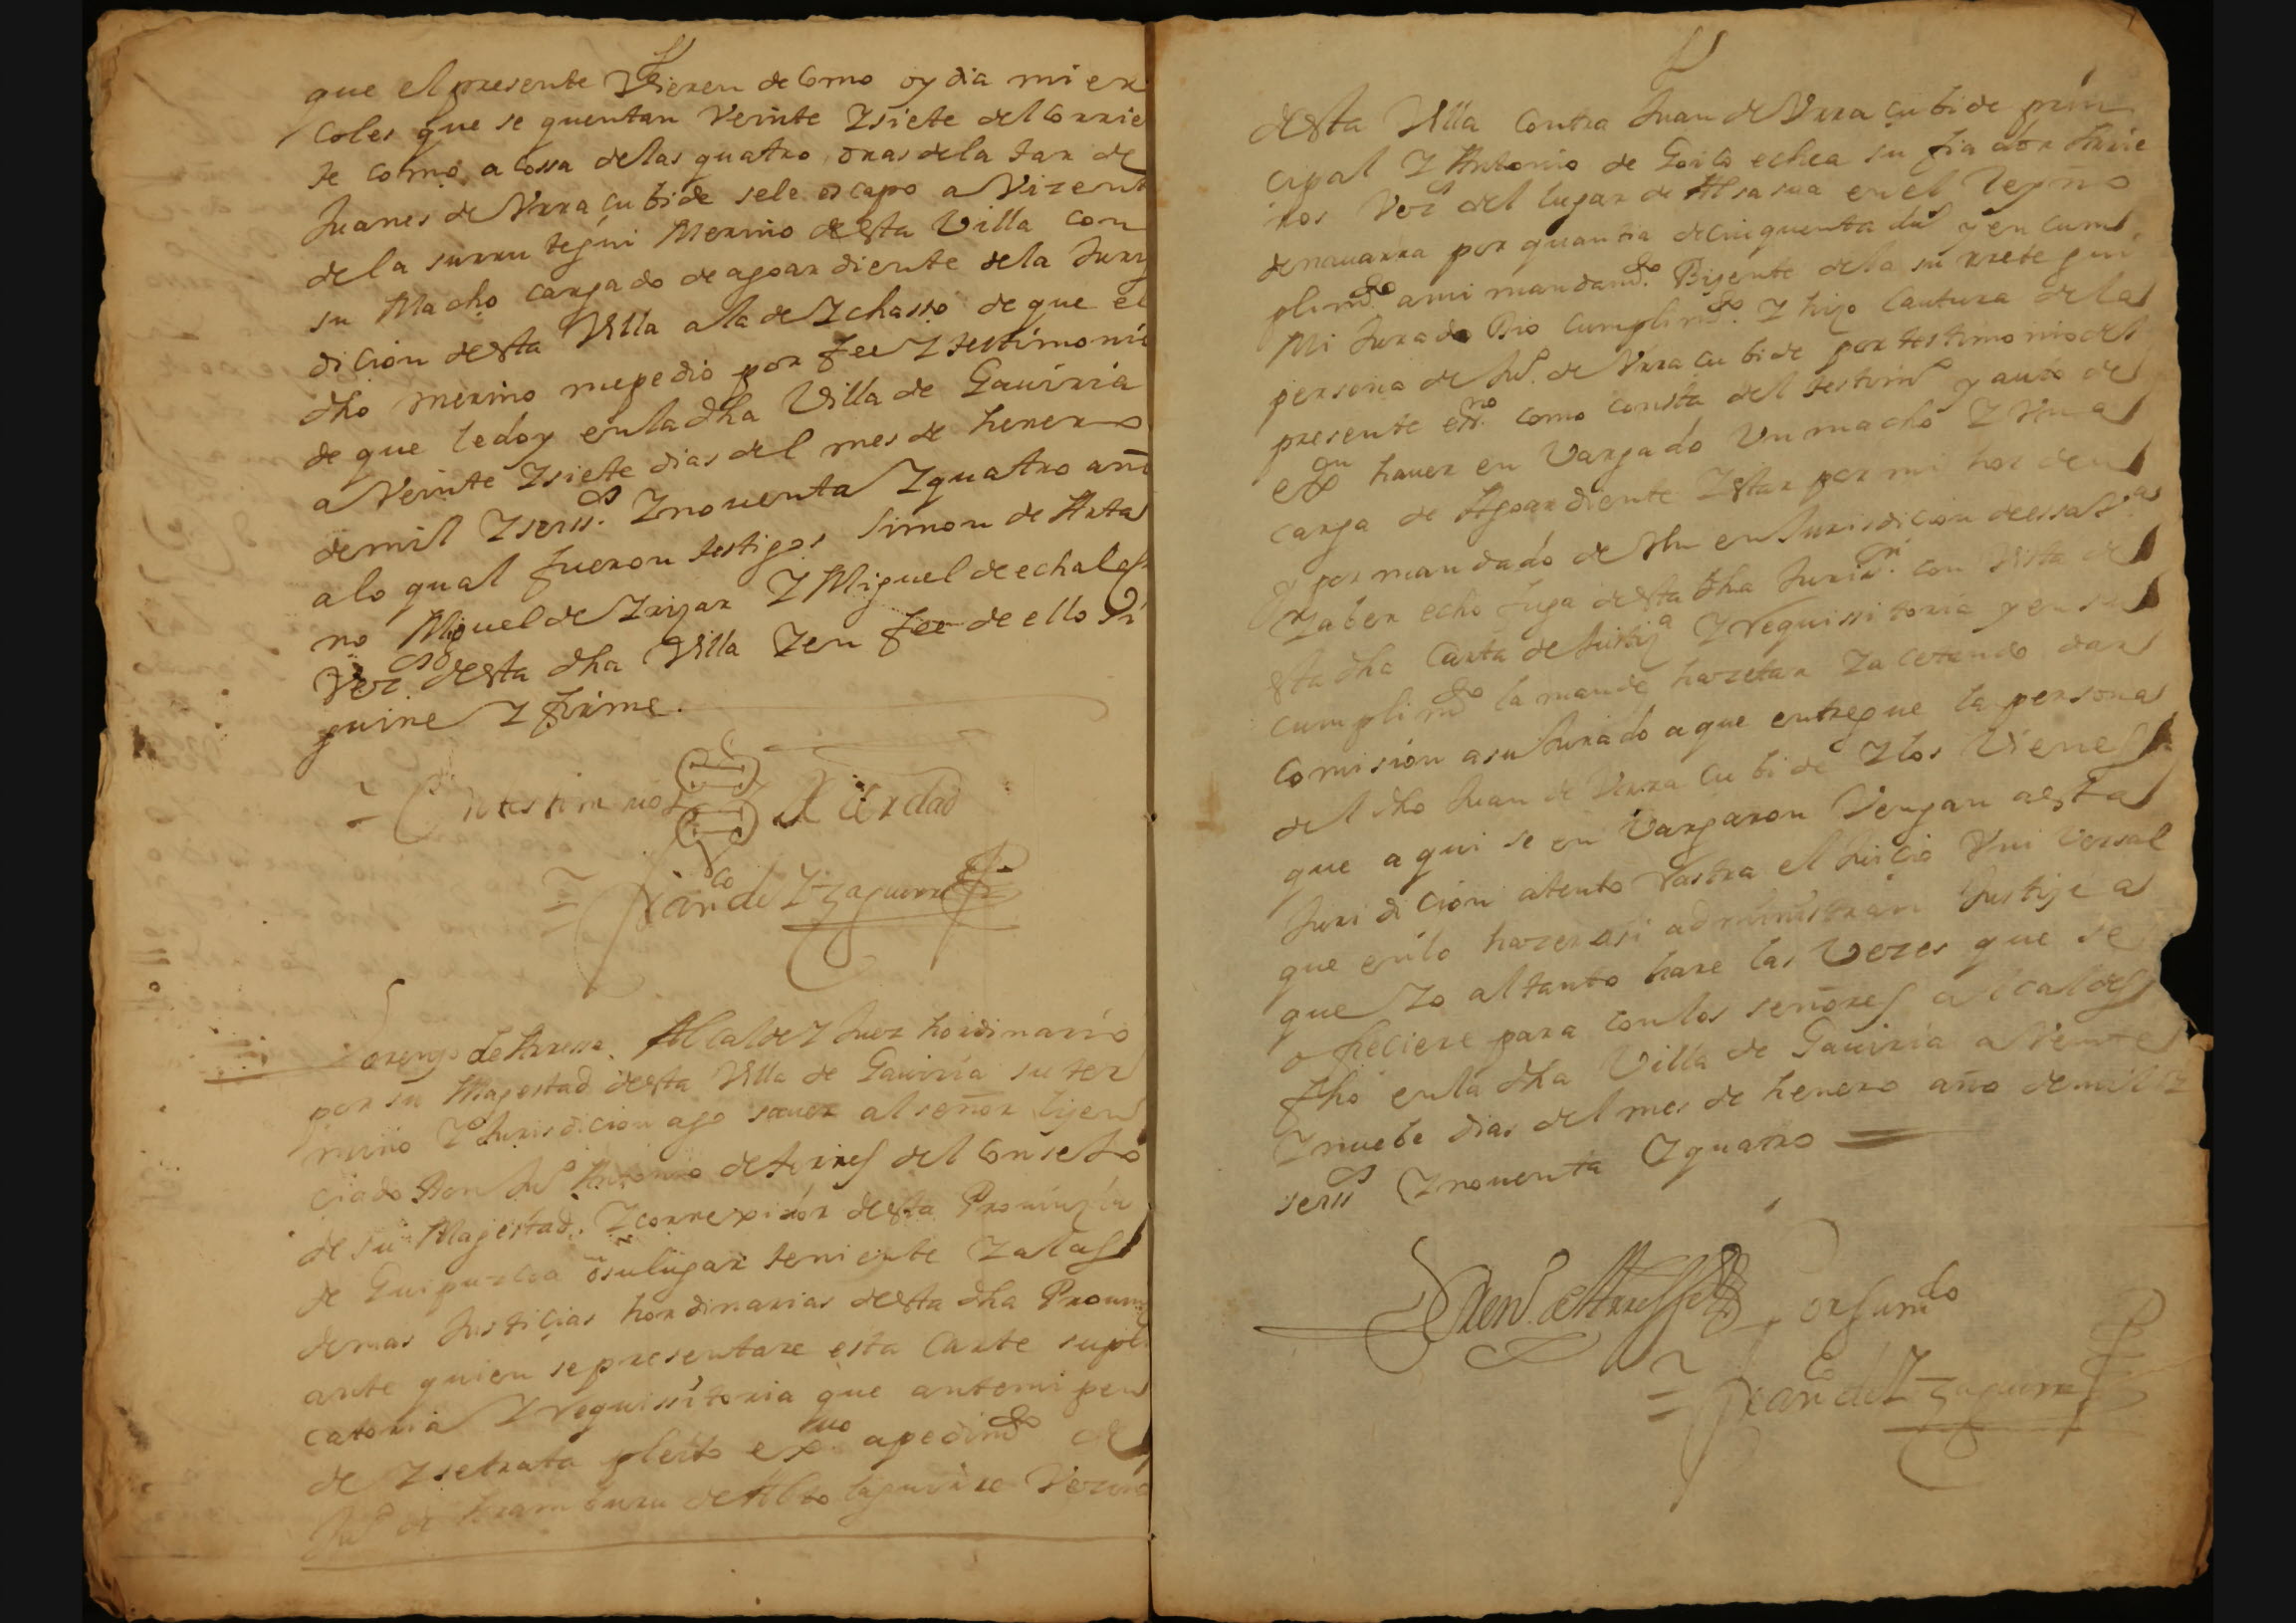 que el presente Vieren de como oy dia mier
coles que se quentan Veinte Y siete del corrie
te como a cossa delas quatro oras dela tarde
Juanes de Vrracubide sele escapo a Vizent
de la surrutegui Merino desta Villa con
su Macho cargado de agoardiente dela Jury
dicion desta Villa ala de Ychasso de que el
dho merino mepedio por fee Y testimonio
de que ledoy enla dha Villa de Gauiria
a Veinte Y siete dias del mes de henero
demil Y seiss.os Y nouenta Y quatro añ
alo qual fueron testigos Simon de Arta
no Miguel de Yrizar Y Miguel de echalas
Vezos desta dha Villa Y en fee de ello si
guine Y firme.
En testimonio de Verdad
Franco de Yzaguirre
Lorenzo de Arresse Alcalde Y Juez hordinario
por su Magestad desta Villa de Gauiria su ter
mino Y Jurisdicion ago sauer al señor lizen
ciado Don Ju.o Antonio de torres del Consejo
de su Magestad. Y correxidor desta Prouinzia
de Guipuzcoa o su lugar teniente Y a las
demas Justicias hordinarias desta dha Prouin
ante quien se presentare esta Carta supli
catoria Y requissitoria que antemi pen
de Y setrata pleito exuo apedimto de
Ju.o de Aramburu de Alto laguirre Vezino
desta Villa contra Juan de Vrracubide prin
cipal Y Antonio de Goicoechea su fiador
Vez.os del lugar de Alsasua en el Reyno
denauarra por quantia decinquenta du.s y en cum
plimto ami mandamto. Bizente dela surrutegui
Mi Jurado Dio cumplimto. Y hizo Cautura dela
persona de Ju.o de Vrracubide por testimonio del
presente essno como consta del testim.o y auto de
exon hauer en Vargado Un macho Y Una
carga de Agoardiente Y star por mi horden
y por mandado de Vm en Jurisdicion de essa
Y aber echo fuga desta dha Jurisn. con Vista de
sta dha Carta de Justiza Y requissitoria y en su
cumplimto la mande hazetar Y acetando dar
comision asu Jurado aque entregue la persona
del dho Juan de Vrracubide Y los Vienes
que aqui se en Vargaron Vengan aesta
Juridicion atento rastra el Juicio Vniversal
que enlo hazer asi administran Justizia
que Yo al tanto hare las Vezes que se
ofreciere para conlos señores alcaldes
fho enla dha Villa de Gauiria a Veinte
Y nuebe dias del mes de henero año demil Y
seiss.os Y nouenta Y quatro
Loren.o de Arresse Por su mdo
Fran.co de Yzaguirre